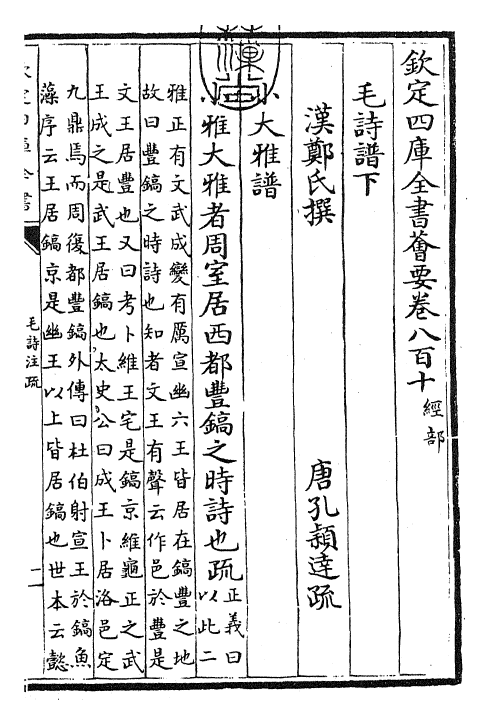 欽定四庫全書薈要卷八百十 經部
毛詩譜下
漢鄭氏撰 唐孔穎達疏
小大雅譜
小雅大雅者周室居西都豐鎬之時詩也疏正義曰以此二
雅正有文武成變有厲宣幽六王皆居在鎬豐之地
故曰豐鎬之時詩也知者文王有聲云作邑於豐是
文王居豐也又曰考卜維王宅是鎬京維龜正之武
王成之是武王居鎬也太史公曰成王卜居洛邑定
九鼎焉而周復都豐鎬外傳曰杜伯射宣王於鎬魚
藻序云王居鎬京是幽王以上皆居鎬也世本云懿
欽定四庫全書
毛詩注疏
一